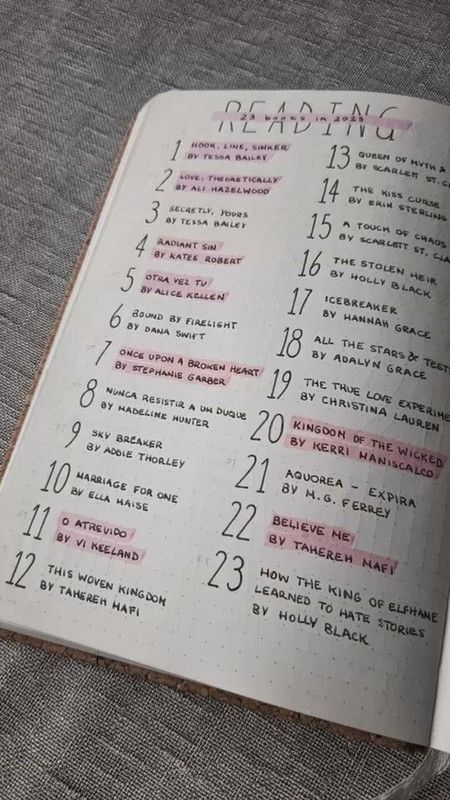 READING
23 books in 2023
1 HOOK, LINE, SINKER
BY TESSA BAILEY
2 LOVE, THEORETICALLY
BY ALI HAZELWOOD
3 SECRETLY, YOURS
BY TESSA BAILEY
4 RADIANT SIN
BY KATEE ROBERT
5 OTRA VEZ TU
BY ALICE KELLEN
6 BOUND BY FIRELIGHT
BY DANA SWIFT
7 ONCE UPON A BROKEN HEART
BY STEPHANIE GARBER
8 NUNCA RESISTIR A UM DUQUE
BY MADELINE HUNTER
9 SKY BREAKER
BY ADDIE THORLEY
10 MARRIAGE FOR ONE
BY ELLA MAISE
11 O ATREVIDO
BY VI KEELAND
12 THIS WOVEN KINGDOM
BY TAHEREH MAFI
13 QUEEN OF MYTH &
BY SCARLETT ST.
14 THE KISS CURSE
BY ERIN STERLING
15 A TOUCH OF CHAOS
BY SCARLETT ST.
16 THE STOLEN HEIR
BY HOLLY BLACK
17 ICEBREAKER
BY HANNAH GRACE
18 ALL THE STARS &
BY ADALYN GRACE
19 THE TRUE LOVE
BY CHRISTINA LAUREN
20 KINGDOM OF THE WICKED
BY KERRI MANISCALCO
21 AQUOREA - EXPIRA
BY M.G. FERREY
22 BELIEVE ME
BY TAHEREH MAFI
23 HOW THE KING OF ELFHAME
LEARNED TO HATE STORIES
BY HOLLY BLACK